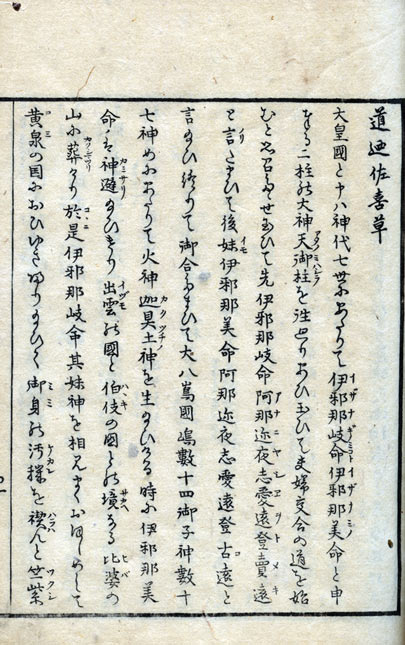 道廼佐喜草
大皇國と申ハ神代七世にあたりて伊邪那岐命伊邪那美命と申
まる二柱の大神天御柱を往めくりあひ玉ひて夫婦交合の道を始
むと思召させ玉ひて先伊邪那岐命阿那迩夜志愛遠登賣遠
と言たまひて後妹伊邪那美命阿那迩夜志愛遠登古遠と
言たまひ終りて御合たまひて大八嶌國嶋數十四御子神數十
七神めにあたりて火神迦具土神を生たまひける時に伊邪那美
命は神避たまひけり出雲の國と伯伎の国との境なる比婆の
山に葬けり於是伊邪那岐命其妹神を相見まくおほしめして
黄泉の国におひゆき帰りたまひて御身の汚穢を禊んと竺紫